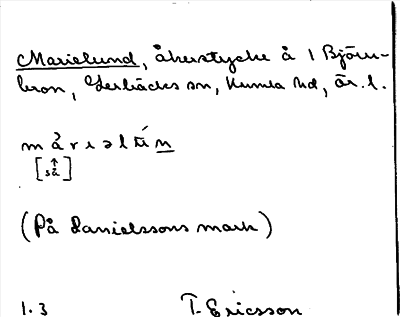 Marielund, åkerstycke å 1 Björn-
bron, Gerbäcks sn, Kumla hd, Ör. l.
m å r ɩ ə l ú n
[så]
(På Danielssons mark)
1.3 T. Ericsson